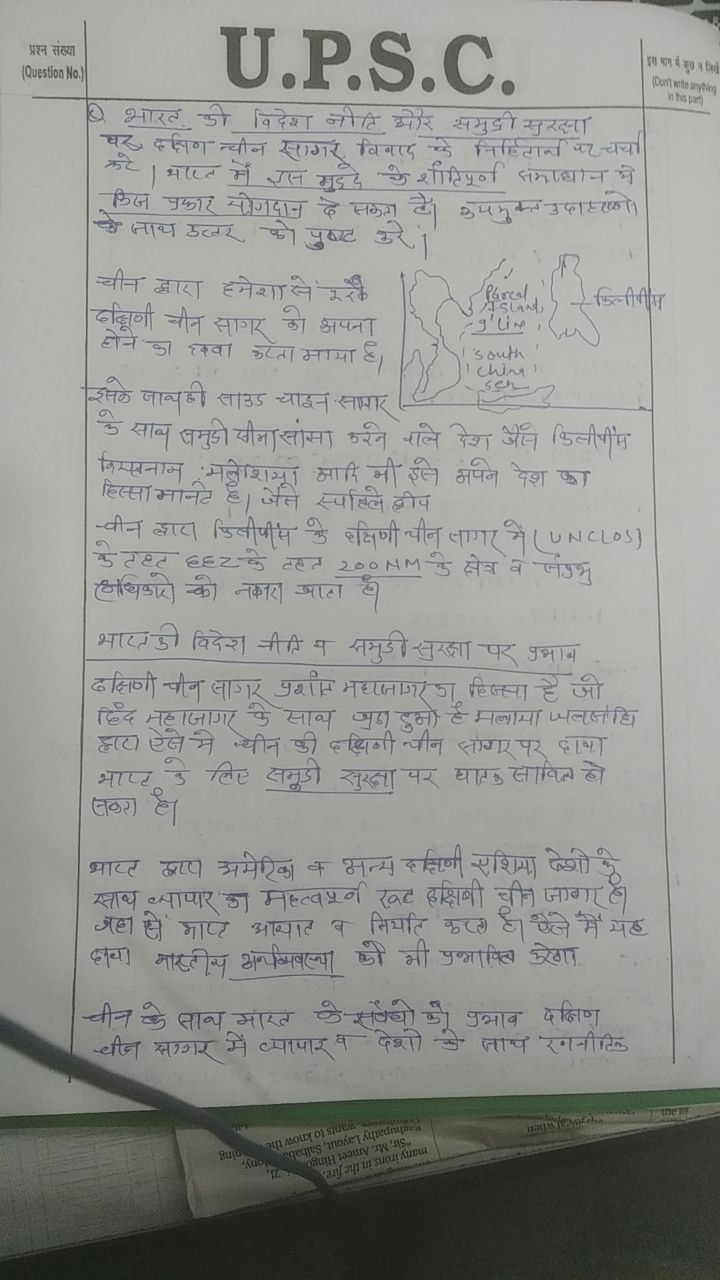 प्रश्न संख्या
(Question No.)
U.P.S.C.
इस भाग में कुछ न लिखें
(Don't write anything
in this part)
Q भारत की विदेश नीति और समुद्री सुरक्षा
पर दक्षिण चीन सागर विवाद के निहितार्थ पर चर्चा
करे। भारत में इस मुद्दे के शांतिपूर्ण समाधान में
किस प्रकार योगदान दे सकता है। उपयुक्त उदाहरणो
के साथ उत्तर को पुष्ट करे।
चीन द्वारा हमेशा से
दक्षिणी चीन सागर को अपना
होने का दावा करता आया है।
Island
9'Line
South
China
Sea
फिलीपींस
इसके साथ ही साउथ चाइना सागर
के साथ समुद्री सीमा सांझा करने वाले देश जैसे फिलीपींस
वियतनाम मलेशिया आदि भी इसे अपने देश का
हिस्सा मानते है। जैसे स्प्रैटले द्वीप
चीन द्वारा फिलीपींस के दक्षिणी चीन सागर में (UNCLOS)
के तहत EEZ के तहत 200 NM के क्षेत्र व संप्रभु
अधिकारो को नकारा जाता है।
भारत की विदेश नीति व समुद्री सुरक्षा पर प्रभाव
दक्षिणी चीन सागर प्रशांत महासागर का हिस्सा है जो
हिंद महासागर के साथ जुड़ा हुआ है मलाका जलसंधि
द्वारा ऐसे में चीन की दक्षिणी चीन सागर पर दावा
भारत के लिए समुद्री सुरक्षा पर घातक साबित हो
सकता है।
भारत द्वारा अमेरिका व अन्य दक्षिणी एशिया देशो के
साथ व्यापार का महत्वपूर्ण रूट दक्षिणी चीन सागर है।
जहा से भारत आयात व निर्यात करता है। ऐसे में यह
दावा भारतीय अर्थव्यवस्था को भी प्रभावित करेगा
चीन के साथ भारत के संबंधो को प्रभाव दक्षिण
चीन सागर में व्यापार व देशो के साथ रणनीतिक
many irons in the fire,
"Sir, Mr. Ameet
wants to know the